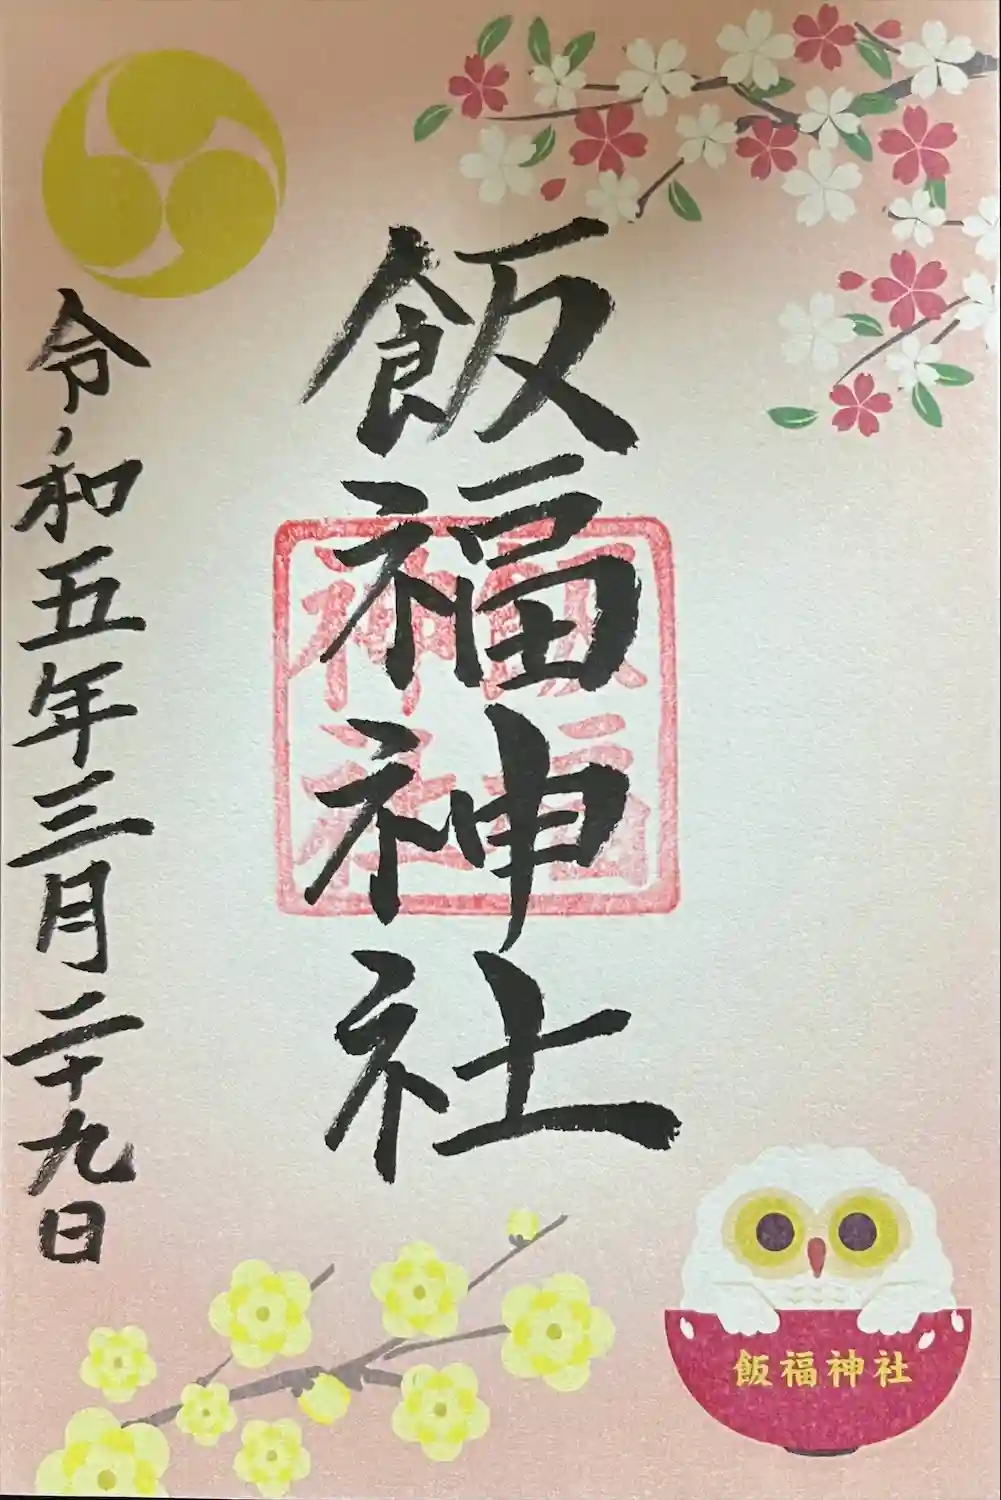 飯福神社
飯福
神社
令和五年三月二十九日
飯福神社